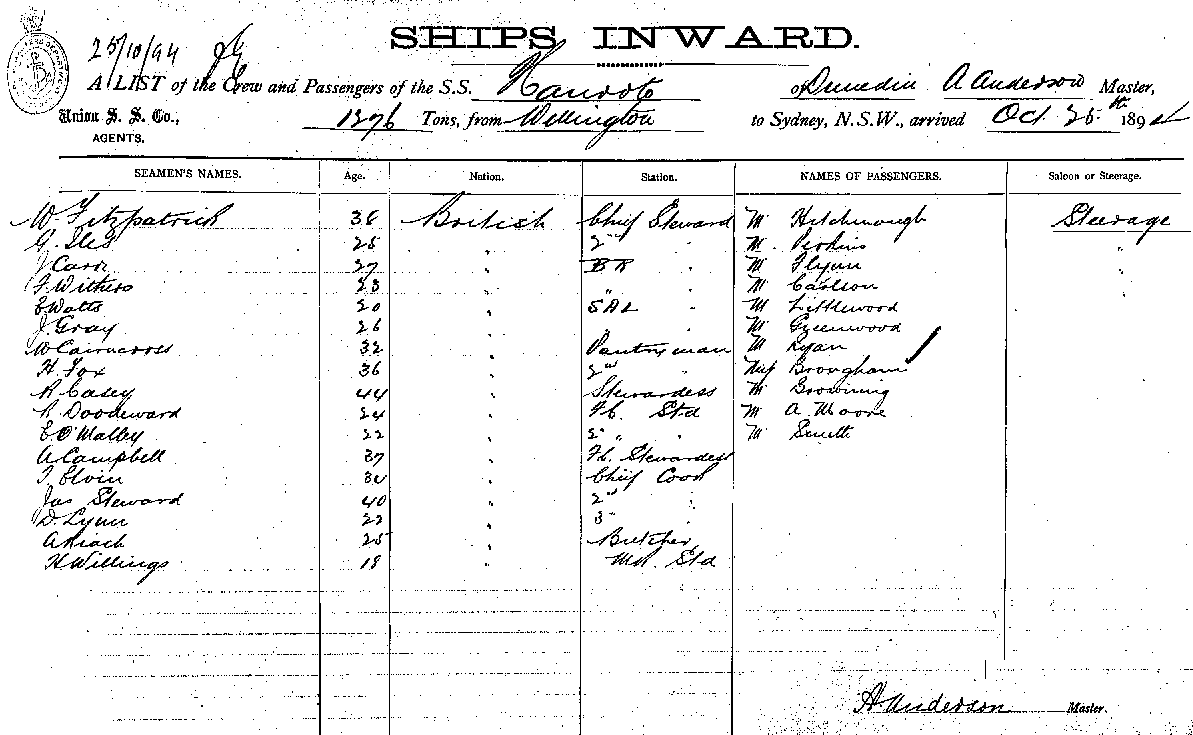 25/10/94
SHIPS INWARD.
A LIST of the Crew and Passengers of the S.S. of Dunedin A Anderson Master,
Union S. S. Co., AGENTS. Tons, from Wellington to Sydney, N.S.W., arrived Oct 25th 1894
SEAMEN'S NAMES. Age. Nation. Station. NAMES OF PASSENGERS. Saloon or Steerage.
W. Fitzpatrick 36 British Chief Steward Mr Hitchmough Steerage
G. Iles 25 " 2nd " Mr Perkins "
J Carr 27 " BR " Mr Flynn "
F. Withers 23 " " Mr Carlson "
E Watts 20 " SAL " Mr Littlewood
J. Gray 26 " " Mr Greenwood
W Cairncross 32 " Pantryman Mr Ryan
H. Fox 36 " 2nd " Brougham
R Casey 44 " Stewardess Mr Browning
R. Doodeward 24 " Std Mr A Moore
E O'Malley 22 " 2nd " " Mr Smith
A Campbell 37 " Stewardess
T. Elvin 34 " Chief Cook
Jas Steward 40 " 2nd "
D. Lynn 22 " 3rd "
A Riach 25 " Butcher
H Willings 18 " Std
A Anderson Master.